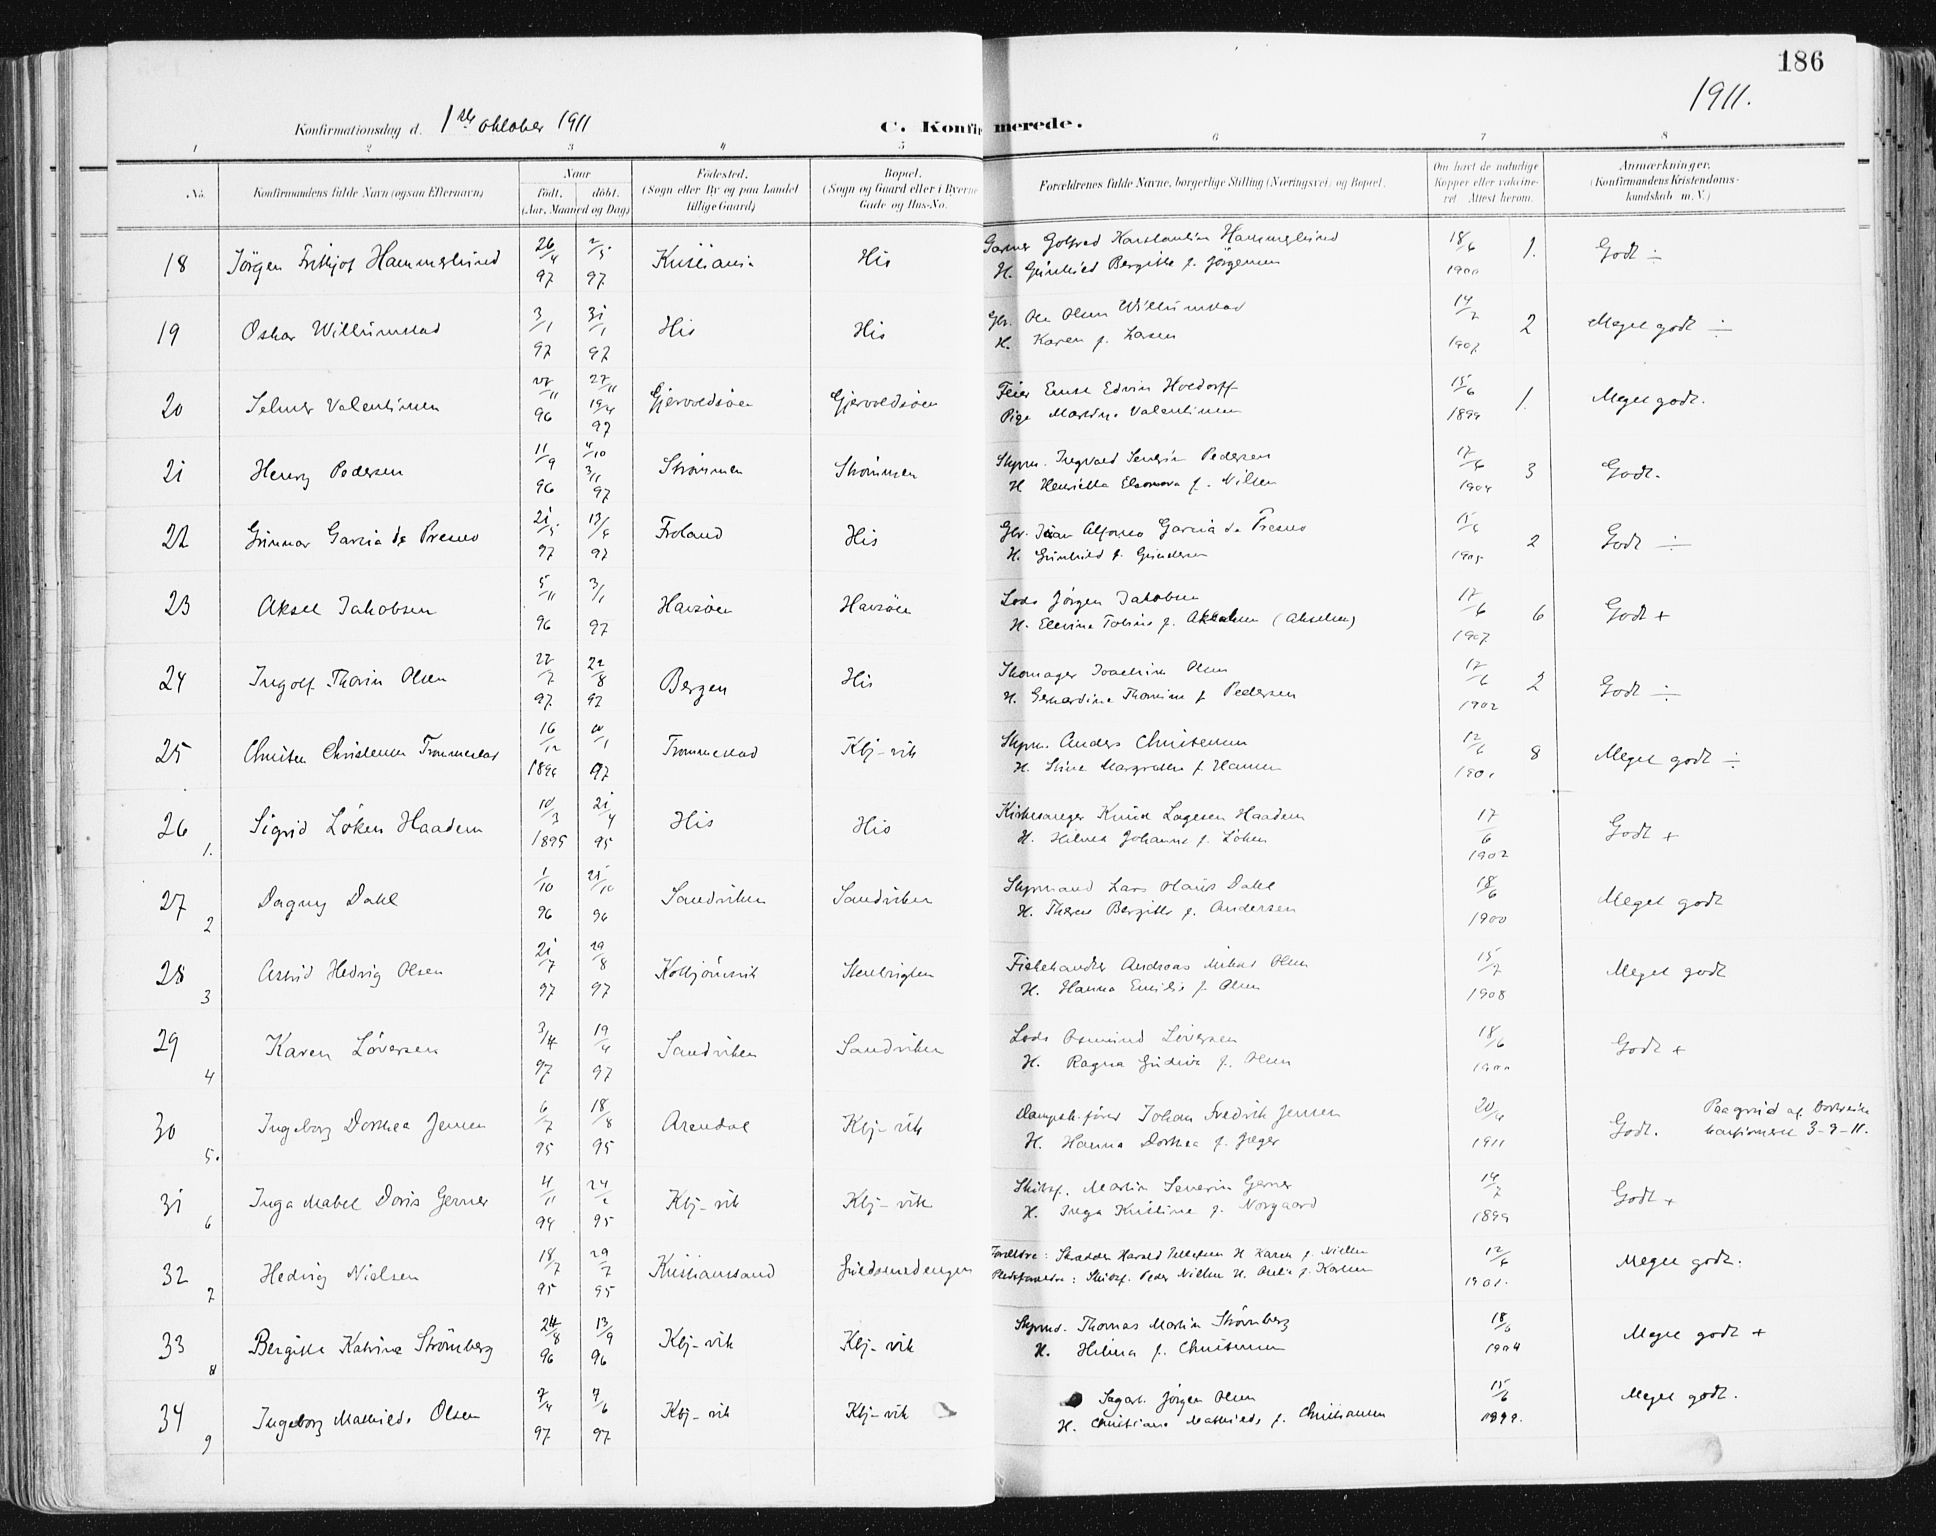 186
1911.
Konfirmationsdag d. 1ste oktober 1911
C. Konfirmerede.
1 2 3 4 5 6 7 8
No. Konfirmandens fulde Navn (ogsaa Efternavn) Naar Født. døbt. (Aar, Maaned og Dag) Fødested. (Sogn eller By og paa Landet tillige Gaard) Bopæl. (Sogn og Gaard eller i Byerne Gade og Hus-No. Forældrenes fulde Navne, borgerlige Stilling (Næringsvei) og Bopæl. Om havt de naturlige Kopper eller vaccineret. Attest herom. Anmærkninger. (Konfirmandens Kristendomskundskab m. V.)
18 Jörgen Frithjof Hammerlund 26/4 97 2/5 97. His Garver Golfred Konstantin Hammerlund 18/6 1900 1. Godt ÷
H. Gunhild Bergitte f. Jörgensen
19 Oskar Willumstad 3/1 97 31/1 97 His His Gbr. Ole Olsen Willumstad 14/7 1907 2 Meget godt ÷
H. Karen f. Larsen
20 Selmer Valentinsen 96 27/11 19/4 97 Gjervoldsöen Gjervoldsöen Feier Ernst Edvin Holdorff 15/6 1899 1. Meget godt.
Pige Valentinsen
21 Henry Pedersen 11/9 96 3/11 97 Strömmen Strömmen Styrm. Ingvald Severin Pedersen 17/6 1904 3 Godt.
H Henrikka Eleonora f. Nilsen
22 Gunnar Garcia de Presno 21/5 97 97 Froland His Gbr. Juan Alfonso Garcia de Presno 15/6 2 Godt ÷
H. Gunhild f. Gundersen
23 Aksel Jakobsen 5/11 96 3/1 97 Havsöen Havsöen Lods Jörgen Jakobsen 17/6 1907 6 Godt +
H. Elevine Tobine f. (Akselsen)
24 Ingolf Thorin Olsen 22/7 97 22/8 97 Bergen His Skomager Joachim Olsen 12/6 1902 2 Godt ÷
H. Gerhardine Thomine f Pedersen
25 Christen Christensen Trommestad 16/12 1896 10/1 97 Trommestad Kbj-vik Styrm. Anders Christensen 12/6 1901 8 Meget godt ÷
H. Stine Margrethe f Hansen
26 1. Sigrid Löken Haadem 10/3 1895 21/4 95 His His Kirkesanger Knud Lagesen Haadem 17/6 1902 Godt +
H. Hilma Johanne f. Löken
27 2 Dagny Dahl 1/10 96 25/10 96 Sandviken Sandviken Styrmand Lars Hans Dahl 18/6 1900 Meget godt
H. Therese Bergitte f. Andersen
28 3 Astrid Hedvig Olsen 21/7 97 29/8 97 Kolbjörnsvik Stenbrigten Fiskehandler Andreas Olsen 15/7 1908 Meget godt
H. Hanna Emilie f. Olsen
29 4 Karen Löversen 3/4 97 19/4 97 Sandviken Sandviken Lods Osmund Löversen 18/6 1900 Godt +
H. Ragna Gudine f. Olsen
30 5. Ingeborg Dorthea Jensen 6/7 95 18/8 95 Arendal Kbj-vik Dampsk. förer Johan Fredrik Jensen 20/4 1911 Godt.
H. Hanna Dorthea f. Jæger
Paagrund af bortreise konfirmeret 3-9-11.
31 6 Inga Mabel Doris Gerner 4/11 94 24/2 95 Kbj-vik Kbj-vik Skibsf. Martin Severin Gerner 14/7 1899 Godt +
H. Inga Kristine f. Norgaard
32 7 Hedvig Nielsen 18/7 95 29/7 95 Kristianssand Guldsmedengen Forældre: Skrædder Harald Tellefsen H Karen f. Nielsen 12/6 1901. Meget godt.
Pleieforældre: Skibsf. Peder Nielsen H. f. Karlsen
33 8 Bergitte Katrine Strömberg 24/8 96 13/9 96 Kbj-vik Kbj-vik Styrmd. Thomas Martin Strömberg 18/6 1904 Meget godt +
H. Hilma f. Christensen
34 9 Ingeborg Mathilde Olsen 7/4 97 7/6 97 Kbj-vik Kbj-vik Sagarb. Jörgen Olsen 15/6 1899. Meget godt.
H. Christiane Mathilde f. Christiansen